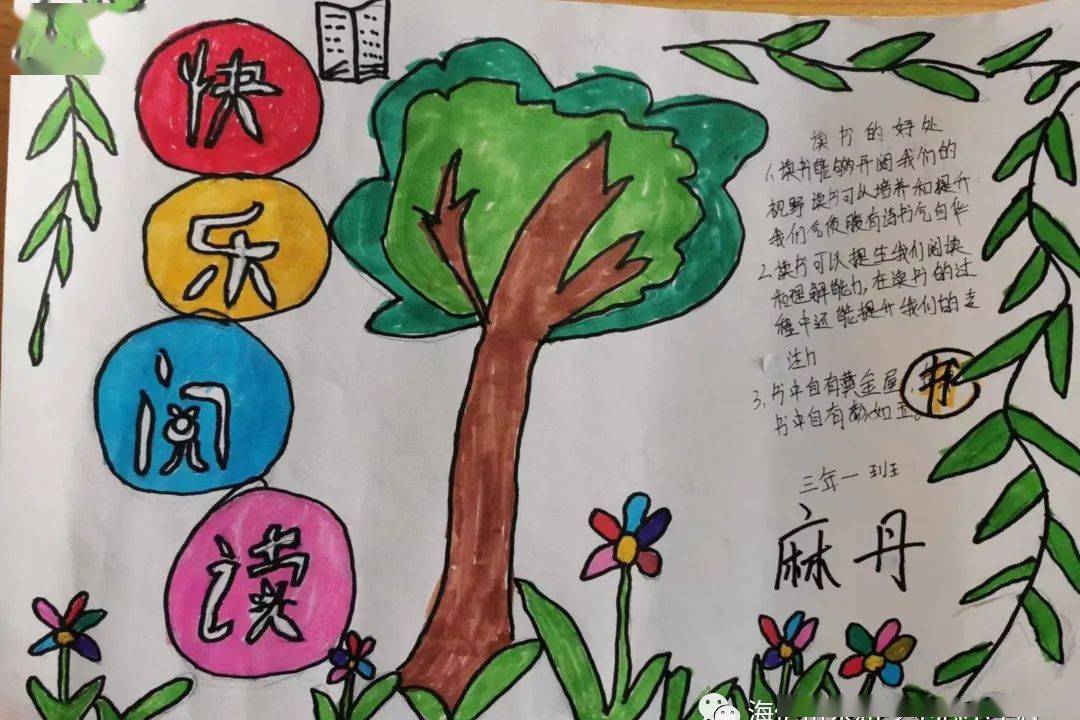 快
乐
阅
读
读书的好处
1.读书能够开阔我们的
视野读书可以培养和提升
我们气质腹有诗书气自华
2.读书可以提生我们阅读
和理解能力,在读书的过
程中还能提升我们的专
注力
3.书中自有黄金屋,书
书中自有颜如玉。
三年一班
麻丹